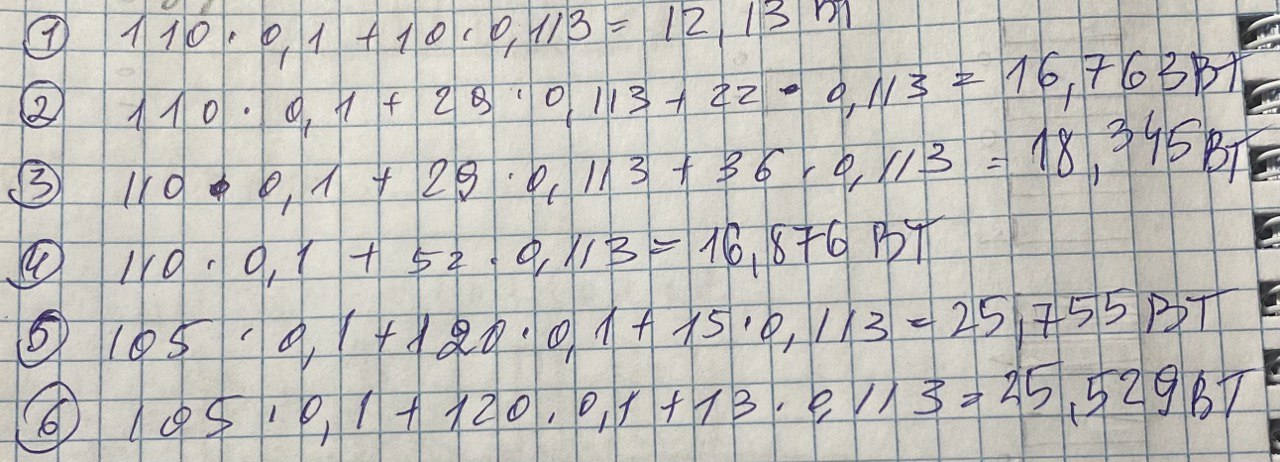 ① 110 · 0,1 + 10 · 0,113 = 12,13 Вт
② 110 · 0,1 + 29 · 0,113 + 22 · 0,113 = 16,763 ВТ
③ 110 · 0,1 + 29 · 0,113 + 36 · 0,113 = 18,345 ВТ
④ 110 · 0,1 + 52 · 0,113 = 16,876 ВТ
⑤ 105 · 0,1 + 120 · 0,1 + 15 · 0,113 = 25,755 ВТ
⑥ 105 · 0,1 + 120 · 0,1 + 13 · 0,113 = 25,529 ВТ